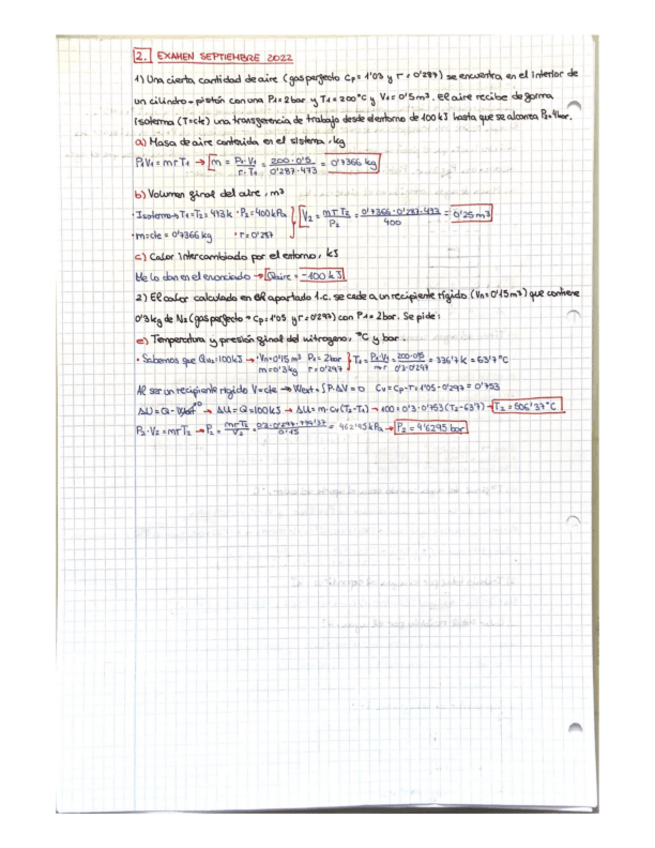 2. EXAMEN SEPTIEMBRE 2022
1) Una cierta cantidad de aire (gas perfecto Cp = 1'03 y r = 0'287) se encuentra en el interior de
un cilindro-pistón con una P1 = 2 bar y T1 = 200°C y V1 = 0'5m³. el aire recibe de forma
isoterma (T=cte) una transferencia de trabajo desde el entorno de 100 kJ hasta que se alcanza P2=4bar.
a) Masa de aire contenida en el sistema, kg
P1V1 = mrT1 → m = P1·V1 / r·T1 = 200·0'5 / 0'287·473 = 0'7366 kg
b) Volumen final del aire, m³
· Isotermo → T1=T2= 473k · P2=400kPa } V2 = mrT2 / P2 = 0'7366·0'287·473 / 400 = 0'25 m³
· m=cte = 0'7366 kg · r=0'287
c) Calor intercambiado por el entorno, kJ
Me lo dan en el enunciado → Qaire = -100 kJ
2) El calor calculado en el apartado 1.c. se cede a un recipiente rígido (VN = 0'15m³) que contiene
0'3kg de N2 (gas perfecto → Cp=1'05 y r=0'297) con P1= 2bar. Se pide:
e) Temperatura y presión final del nitrógeno, °C y bar.
· Sabemos que QN2=100kJ → · VN=0'15m³ P1= 2bar } T1 = P1·V1 / m·r = 200·0'15 / 0'3·0'297 = 336'7 k = 63'7°C
m=0'3kg r=0'297
Al ser un recipiente rígido V=cte → West = ∫P·ΔV=0 Cv=Cp-r=1'05-0'297= 0'753
ΔU = Q - West⁰ → ΔU=Q=100kJ → ΔU= m·Cv(T2-T1) → 100=0'3·0'753(T2-63'7) → T2=506'37°C
P2·V2=mrT2 → P2 = mrT2 / V2 = 0'3·0'297·779'37 / 0'15 = 462'95kPa → P2 = 4'6295 bar